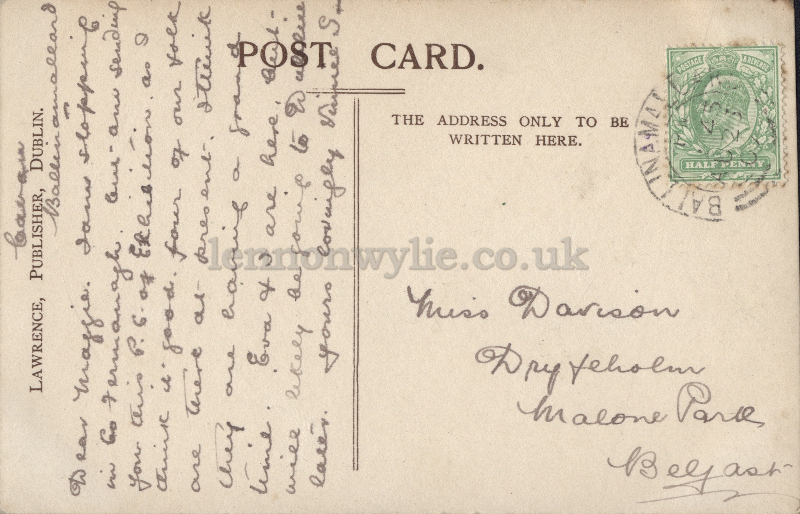 POST CARD.
THE ADDRESS ONLY TO BE
WRITTEN HERE.
LAWRENCE, PUBLISHER, DUBLIN.
POSTAGE REVENUE
HALFPENNY
BALLINAMALLARD
Ballinamallard
Dear Maggie. I am stopping
in Co Fermanagh. but am sending
you this P.C. of Exhibition as I
think it good. four of our folk
are there at present. I think
they are having a grand
time. Eva & I are here, but
will likely be going to
later. Yours lovingly
Miss Davison
Malone Park
Belfast
lennonwylie.co.uk